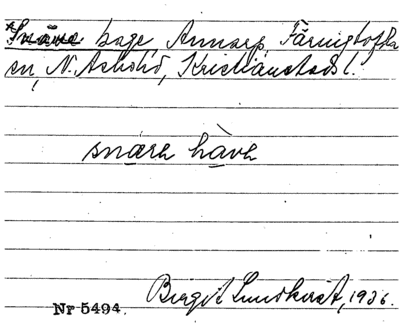 *Snäve bage, Annarp, Färingtofta
sn, N. Åsbo hd, Kristianstads l.
snära hàva
Nr 5494. Birgit Lundkvist, 1936.